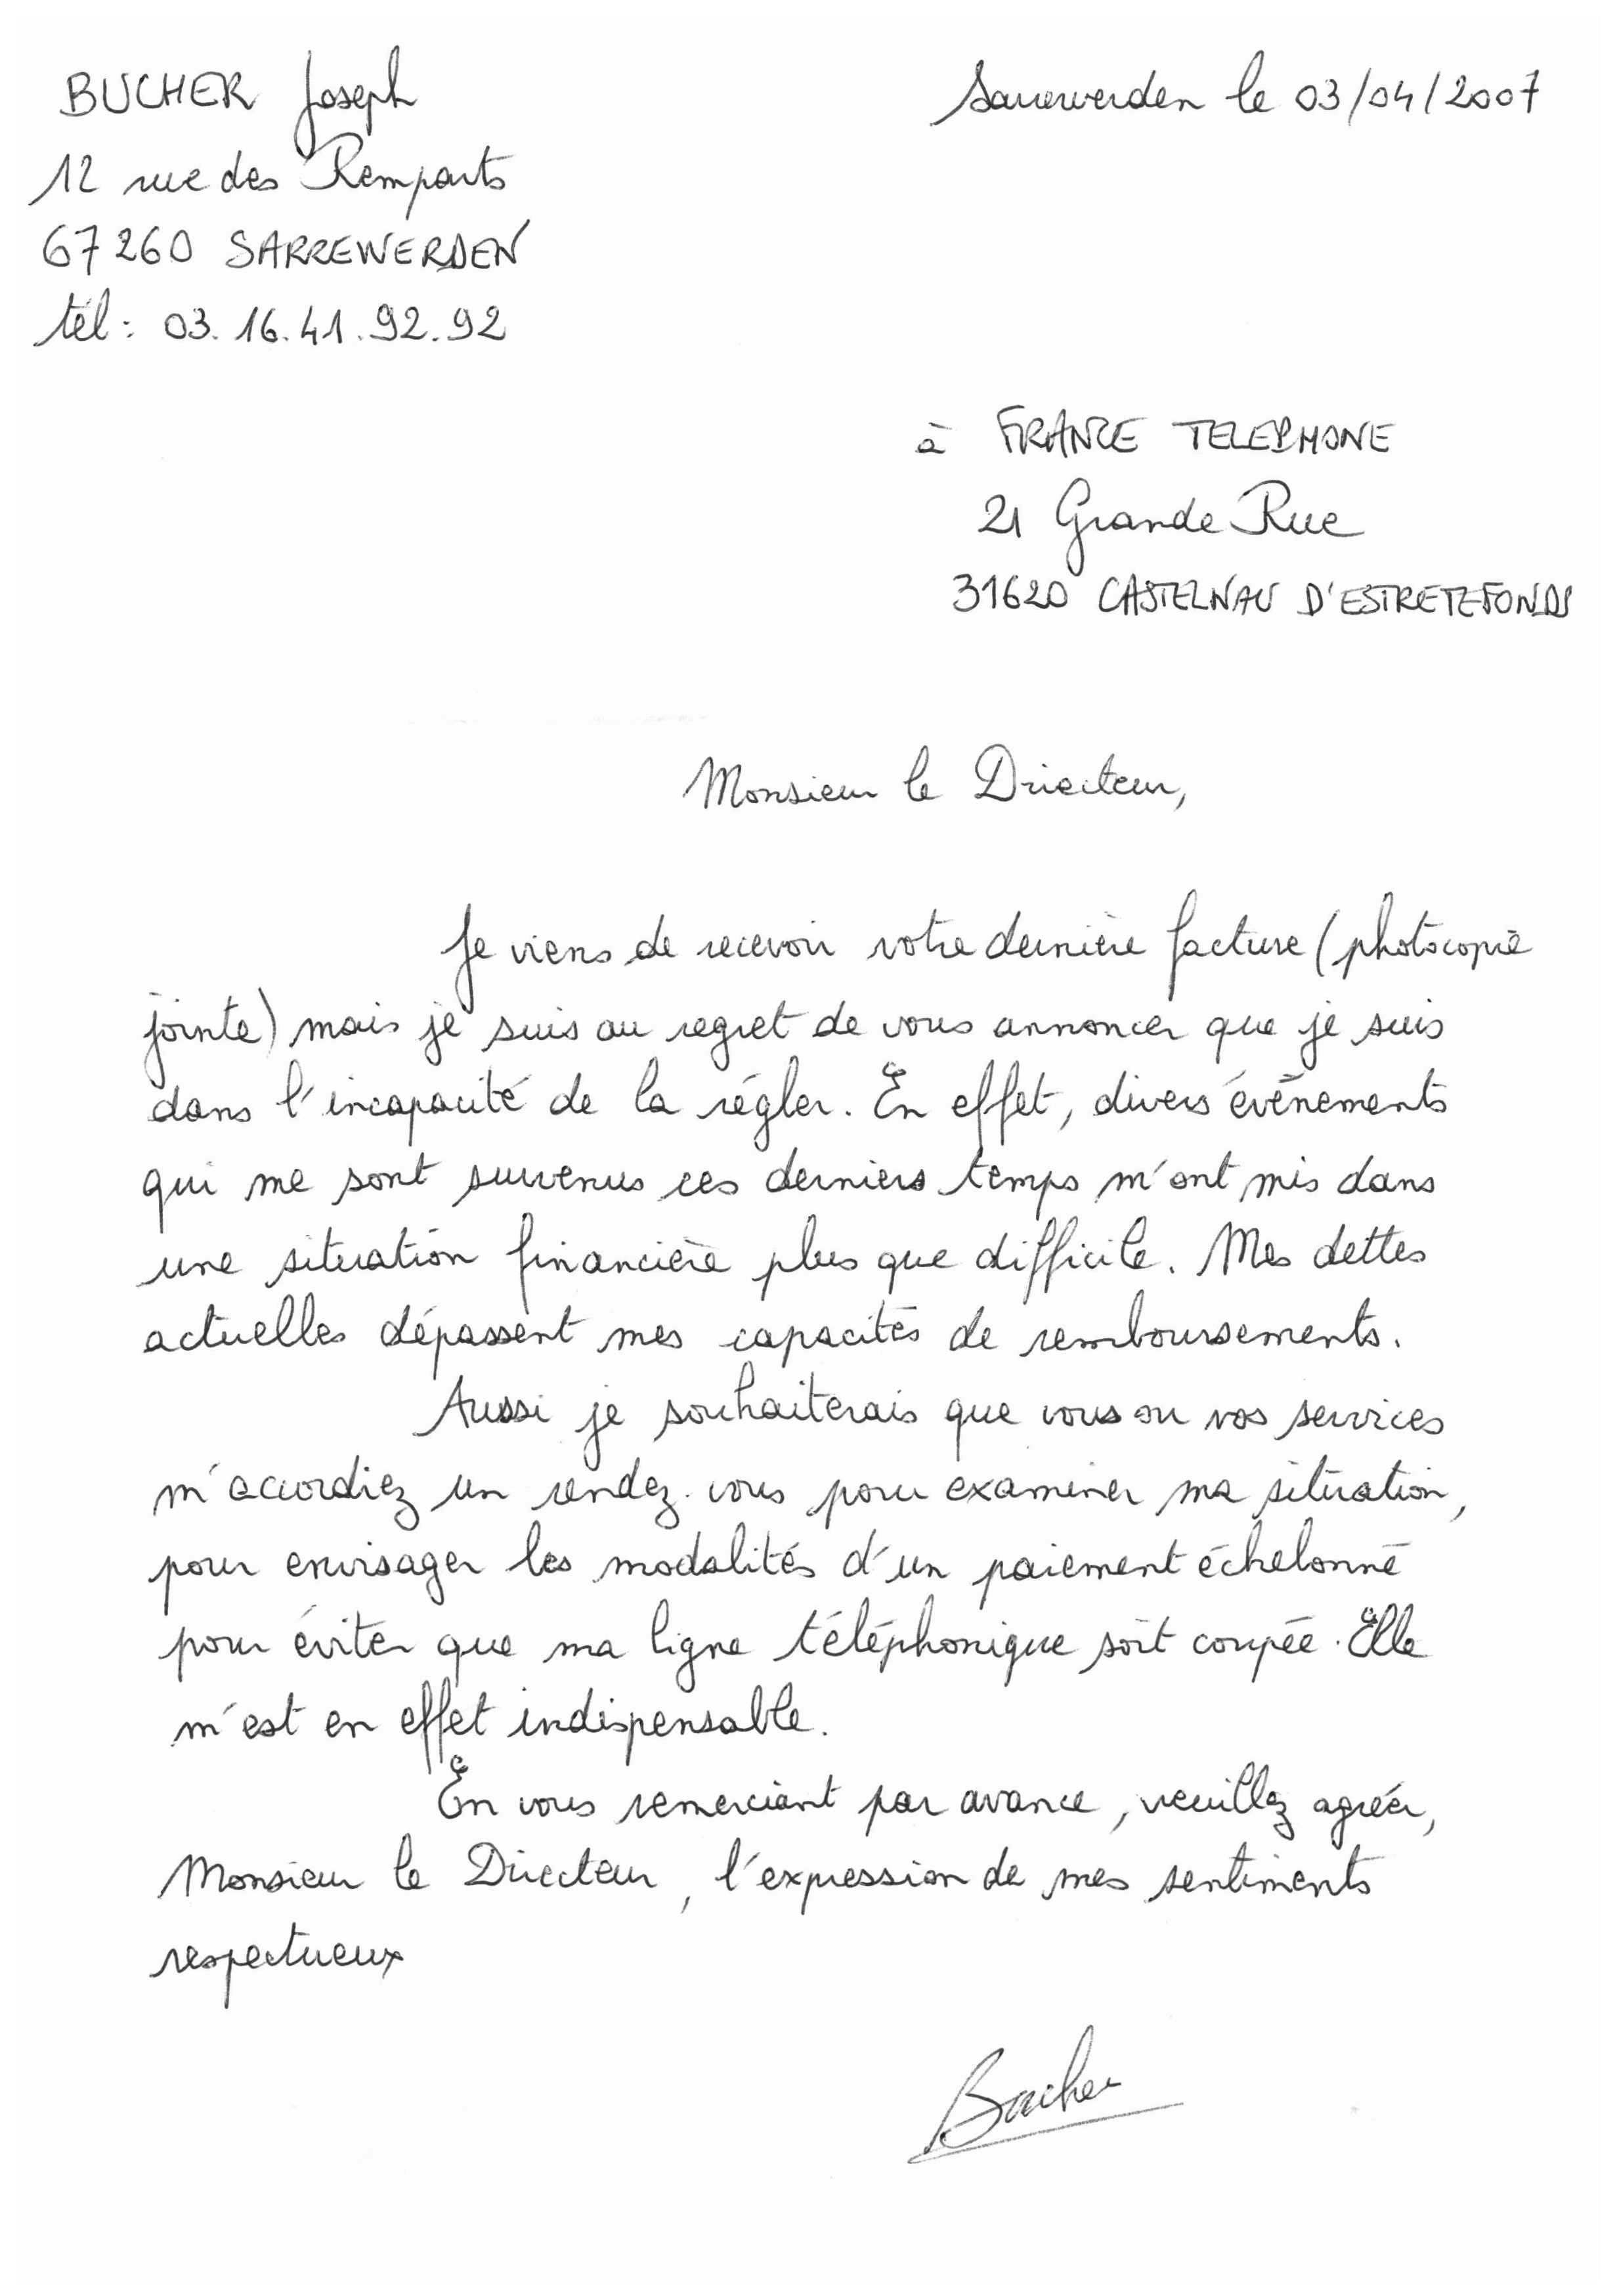 BUCHER Joseph
Sarrewerden le 03/04/2007
12 rue des Remparts
67260 SARREWERDEN
tél : 03.16.41.92.92
à FRANCE TELEPHONE
21 Grande Rue
31620 CASTELNAU D'ESTRETEFONDS
Monsieur le Directeur,
Je viens de recevoir votre dernière facture (photocopie
jointe) mais je suis au regret de vous annoncer que je suis
dans l'incapacité de la régler. En effet, divers événements
qui me sont survenus ces derniers temps m'ont mis dans
une situation financière plus que difficile. Mes dettes
actuelles dépassent mes capacités de remboursements.
Aussi je souhaiterais que vous ou vos services
m'accordiez un rendez-vous pour examiner ma situation,
pour envisager les modalités d'un paiement échelonné
pour éviter que ma ligne téléphonique soit coupée. Elle
m'est en effet indispensable.
En vous remerciant par avance, veuillez agréer,
Monsieur le Directeur, l'expression de mes sentiments
respectueux
Bucher